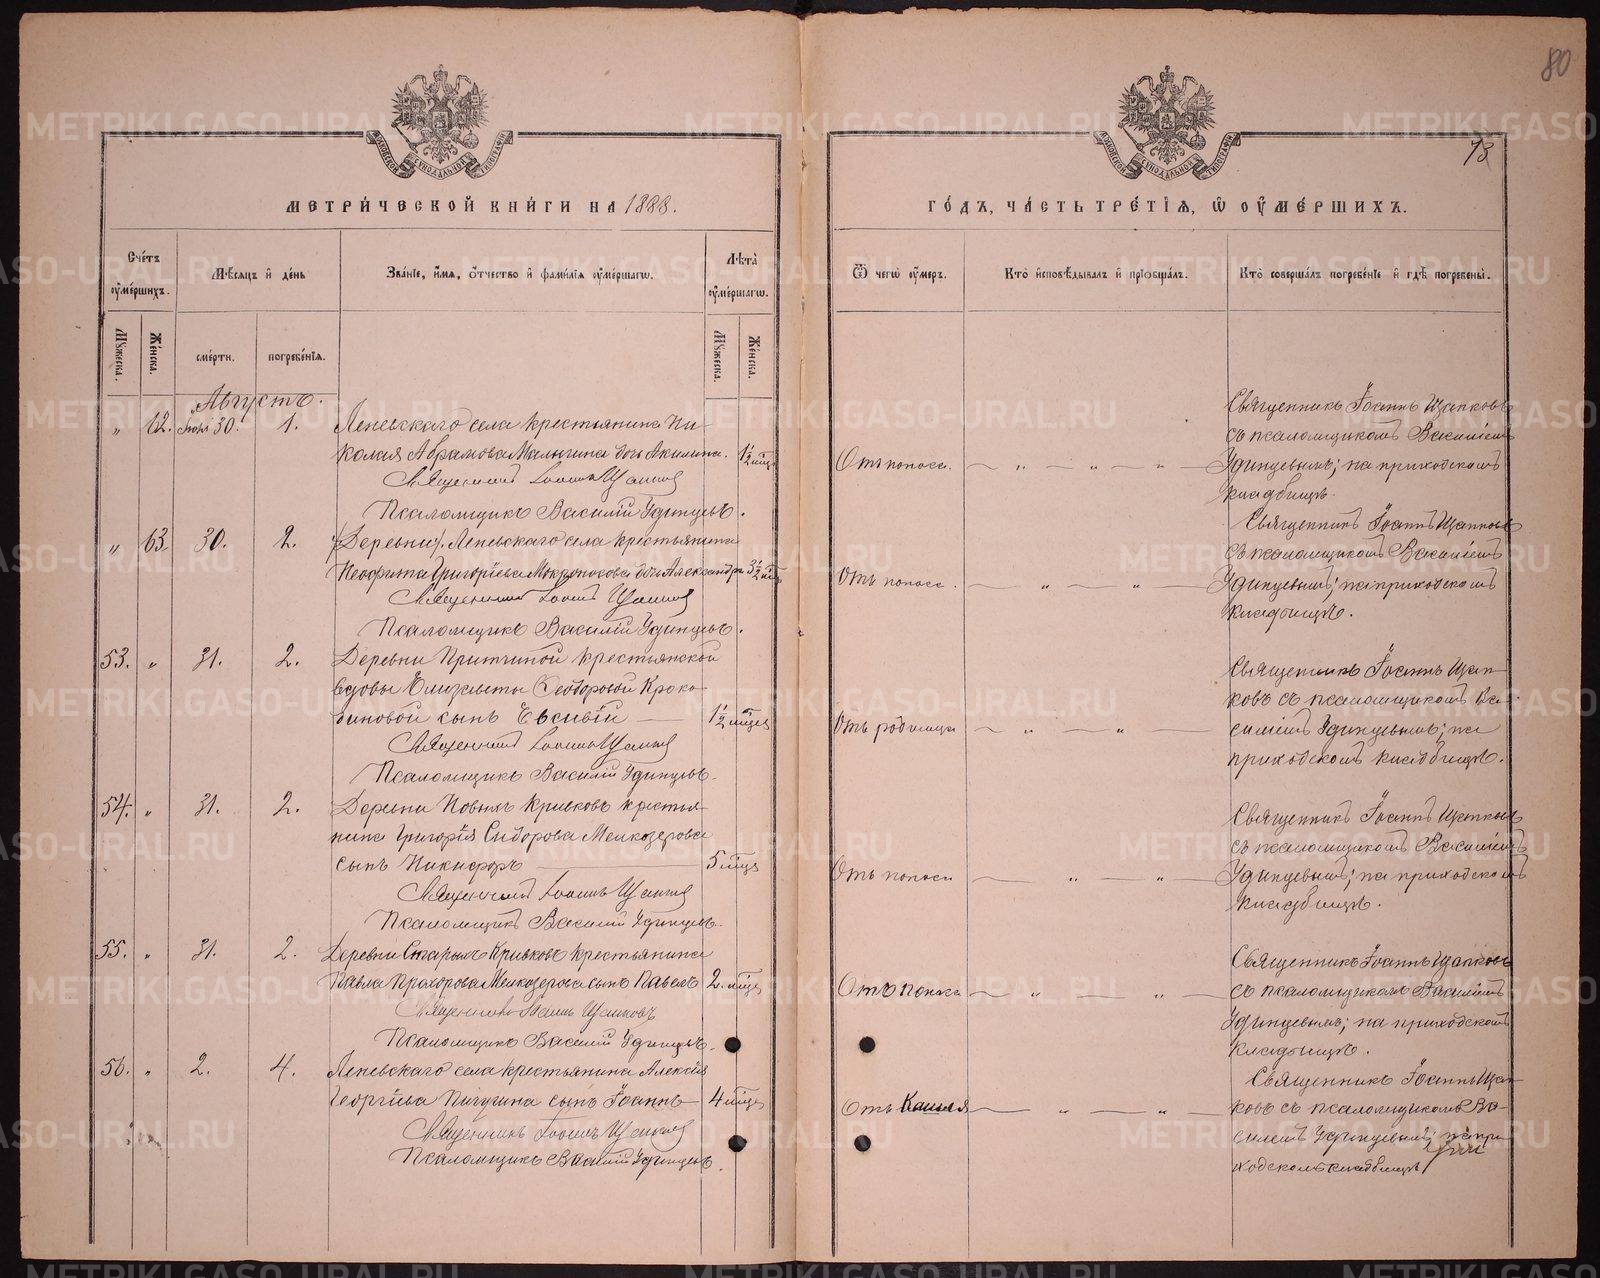 80
73
МЕТРИ́ЧЕСКОЙ КНИ́ГИ НА 1888.
ГО́ДЪ, ЧА́СТЬ ТРЕ́ТІЯ, Ѽ ОУ҆МЕ́РШИХЪ.
Сче́тъ оу҆ме́ршихъ.
Мѣсяцъ и҆ де́нь
Зва́ніе, и҆́мя, о҆́тчество и҆ фами́лія оу҆ме́ршагѡ.
Лѣта̀ оу҆ме́ршагѡ.
Ѿ чегѡ̀ оу҆́меръ.
Кто̀ и҆сповѣ́дывалъ и҆ прїѡбща́лъ.
Кто̀ соверша́лъ погребе́ніе и҆ гдѣ̀ погребены̀.
Му́жеска.
Же́нска.
сме́рти.
погребе́нія.
Му́жеска.
Же́нска.
Августъ.
„ 62. Іюля 30. 1. Леневскаго села крестьянина Ни-
колая Абрамова Малыгина дочь Акилина. 1½ мѣц
Священникъ Іоаннъ Щапков
Псаломщикъ Василій Удинцевъ.
Отъ поноса.
Священникъ Іоаннъ Щапковъ
съ псаломщикомъ Василіемъ
Удинцевымъ; на приходскомъ
кладбищѣ.
„ 63. 30. 2. (Деревни). Леневскаго села крестьянина
Неофита Григорьева Мокроносова дочь Александра 3½ мѣц
Священникъ Іоаннъ Щапков
Псаломщикъ Василій Удинцевъ.
Отъ поноса.
Священникъ Іоаннъ Щапковъ
съ псаломщикомъ Василіемъ
Удинцевымъ; на приходскомъ
кладбищѣ.
53. „ 31. 2. Деревни Притчиной крестьянской
вдовы Елизаветы Ѳеодоровой Кроко-
сынъ Евсивій 1½ мѣцъ
Священникъ Іоаннъ Щапков
Псаломщикъ Василій Удинцевъ.
Отъ родимца
Священникъ Іоаннъ Щап-
ковъ съ псаломщикомъ Ва-
силіемъ Удинцевымъ; на
приходскомъ кладбищѣ.
54. „ 31. 2. Деревни Новыхъ Кривковъ крестья-
нина Григорія Сидорова Мелкозерова
сынъ Никифоръ 5 мѣцъ
Священникъ Іоаннъ Щапков
Псаломщикъ Василій Удинцевъ.
Отъ поноса
Священникъ Іоаннъ Щапковъ
съ псаломщикомъ Василіемъ
Удинцевымъ; на приходскомъ
кладбищѣ.
55. „ 31. 2. Деревни Старыхъ Кривковъ крестьянина
Павла Прохорова Мелкозерова сынъ Павелъ 2. мѣцъ
Священникъ Іоаннъ Щапковъ
Псаломщикъ Василій Удинцевъ.
Отъ поноса
Священникъ Іоаннъ Щапковъ
съ псаломщикомъ Василіемъ
Удинцевымъ; на приходскомъ
кладбищѣ.
56. „ 2. 4. Леневскаго села крестьянина Алексія
Георгіева Пичугина сынъ Іоаннъ 4 мѣцъ
Священникъ Іоаннъ Щапков
Псаломщикъ Василій Удинцевъ.
Отъ Кашля
Священникъ Іоаннъ Щап-
ковъ съ псаломщикомъ Ва-
силіемъ Удинцевымъ; на при-
ходскомъ кладбищѣ
METRIKI.GASO-URAL.RU